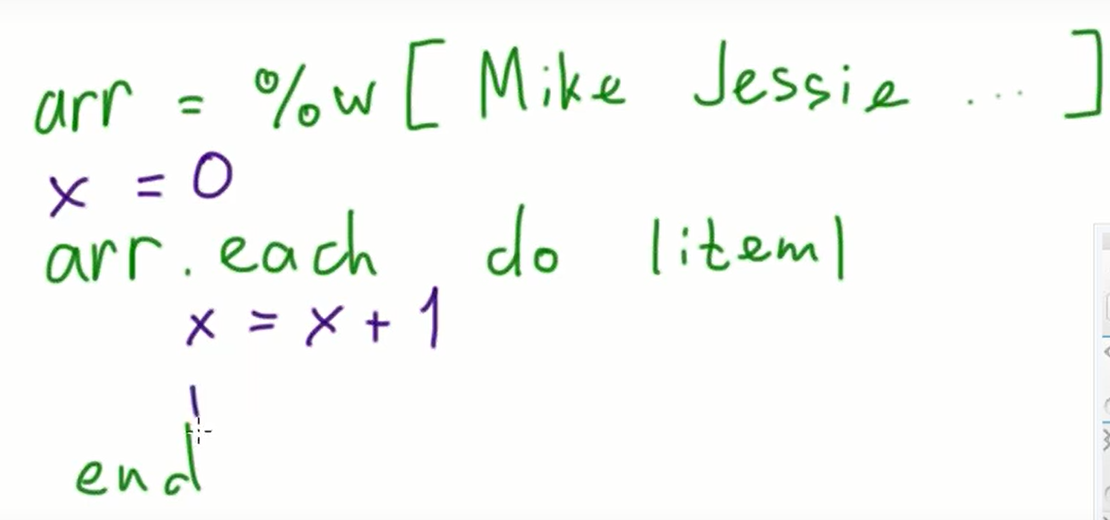 arr = %w[ Mike Jessie ... ]
x = 0
arr.each do |item|
x = x + 1
end